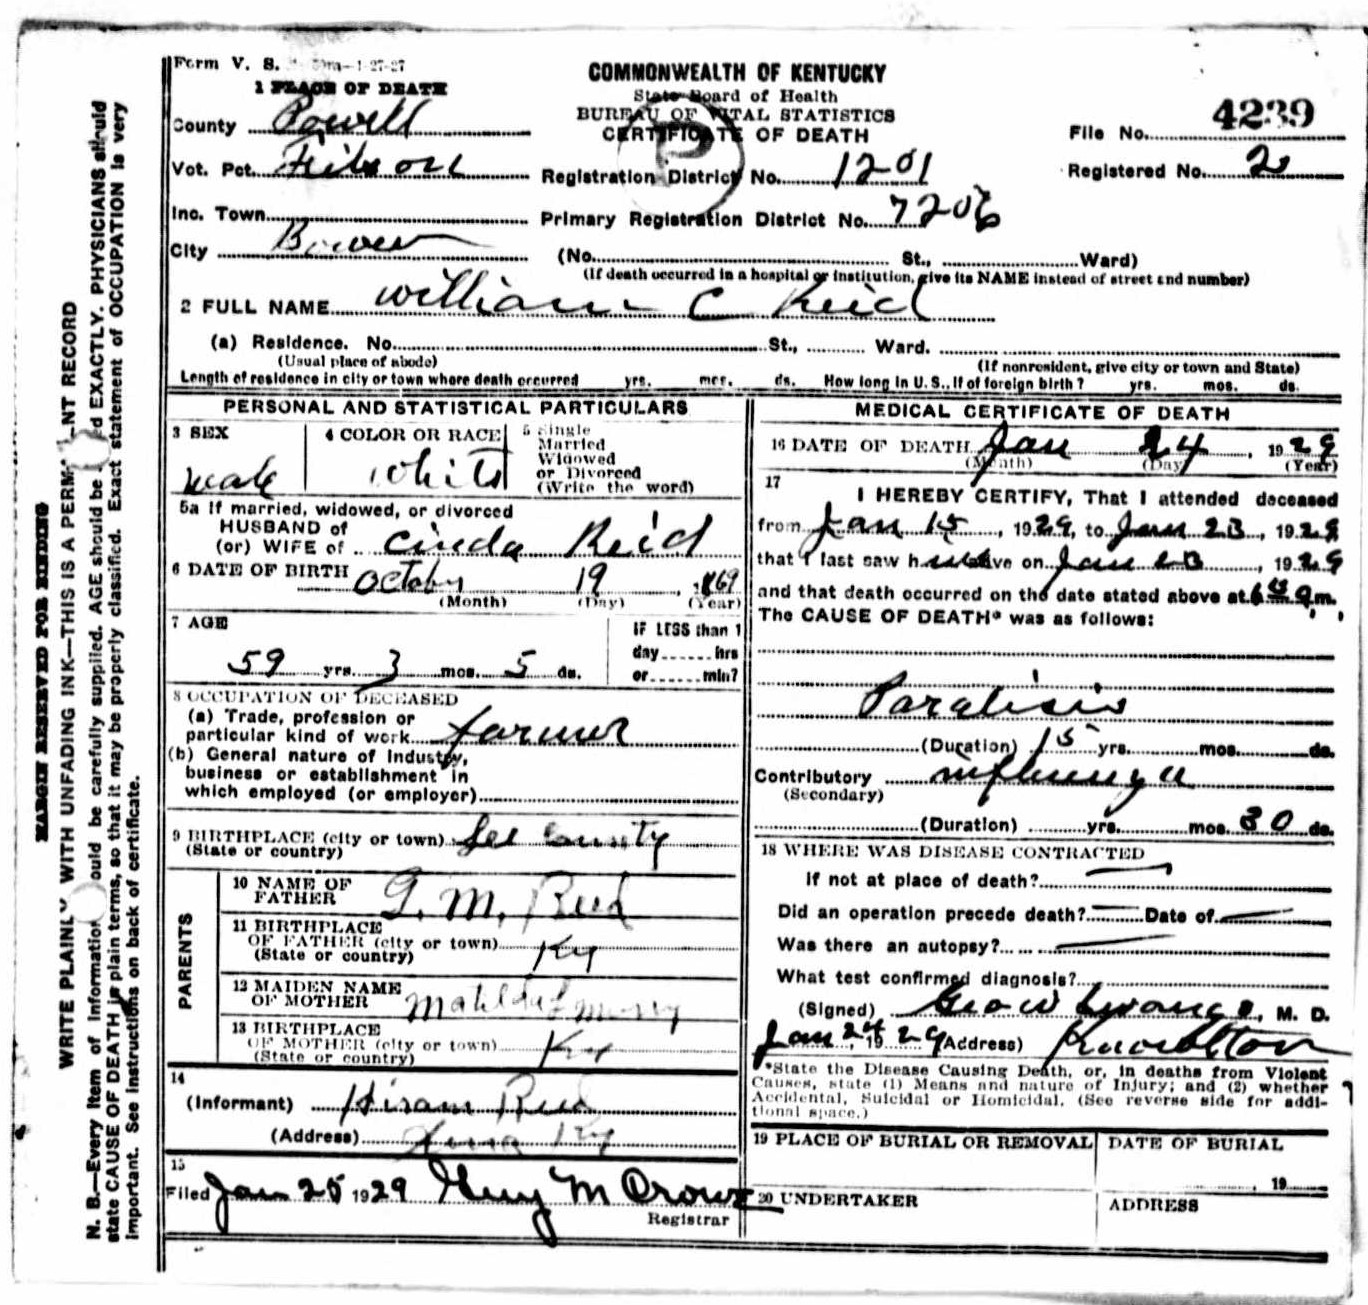 Form V. S. 50m—1-27-27
1 PLACE OF DEATH
COMMONWEALTH OF KENTUCKY
State Board of Health
BUREAU OF VITAL STATISTICS
CERTIFICATE OF DEATH
P
File No. 4239
Registered No. 2
County Powell
Vot. Pct. Filson
Registration District No. 1201
Inc. Town
Primary Registration District No. 7206
City Bowen
(No. St., Ward)
(If death occurred in a hospital or institution, give its NAME instead of street and number)
2 FULL NAME William C Reid
(a) Residence. No. St., Ward.
(Usual place of abode) (If nonresident, give city or town and State)
Length of residence in city or town where death occurred yrs. mos. ds. How long in U. S., if of foreign birth? yrs. mos. ds.
PERSONAL AND STATISTICAL PARTICULARS
3 SEX
male
4 COLOR OR RACE
White
5 Single
Married
Widowed
or Divorced
(Write the word)
5a If married, widowed, or divorced
HUSBAND of
(or) WIFE of Cinda Reid
6 DATE OF BIRTH October 19, 1869
(Month) (Day) (Year)
7 AGE
59 yrs. 3 mos. 5 ds.
IF LESS than 1
day hrs
or min?
8 OCCUPATION OF DECEASED
(a) Trade, profession or
particular kind of work farmer
(b) General nature of Industry,
business or establishment in
which employed (or employer)
9 BIRTHPLACE (city or town) Lee County
(State or country)
PARENTS
10 NAME OF
FATHER G. M. Reed
11 BIRTHPLACE
OF FATHER (city or town) Ky
(State or country)
12 MAIDEN NAME
OF MOTHER Matilda
13 BIRTHPLACE
OF MOTHER (city or town) Ky
(State or country)
14
(Informant) Hiram Reed
(Address) Ky
15
Filed Jan 25 1929 Guy M Crowe
Registrar
MEDICAL CERTIFICATE OF DEATH
16 DATE OF DEATH Jan 24, 1929
(Month) (Day) (Year)
17
I HEREBY CERTIFY, That I attended deceased
from Jan 15, 1929, to Jan 23, 1929
that I last saw him alive on Jan 23, 1929
and that death occurred on the date stated above at m.
The CAUSE OF DEATH* was as follows:
Paralisis
(Duration) 15 yrs. mos. ds.
Contributory influenza
(Secondary)
(Duration) yrs. mos. 30 ds.
18 WHERE WAS DISEASE CONTRACTED
If not at place of death?
Did an operation precede death? — Date of —
Was there an autopsy? —
What test confirmed diagnosis?
(Signed) Geo W , M. D.
Jan 24, 1929 (Address) Knowlton
*State the Disease Causing Death, or, in deaths from Violent
Causes, state (1) Means and nature of Injury; and (2) whether
Accidental, Suicidal or Homicidal. (See reverse side for addi-
tional space.)
19 PLACE OF BURIAL OR REMOVAL
DATE OF BURIAL
, 19
20 UNDERTAKER
ADDRESS
MARGIN RESERVED FOR BINDING
WRITE PLAINLY WITH UNFADING INK—THIS IS A PERMANENT RECORD
N. B.—Every item of information should be carefully supplied. AGE should be stated EXACTLY. PHYSICIANS should
state CAUSE OF DEATH in plain terms, so that it may be properly classified. Exact statement of OCCUPATION is very
important. See instructions on back of certificate.